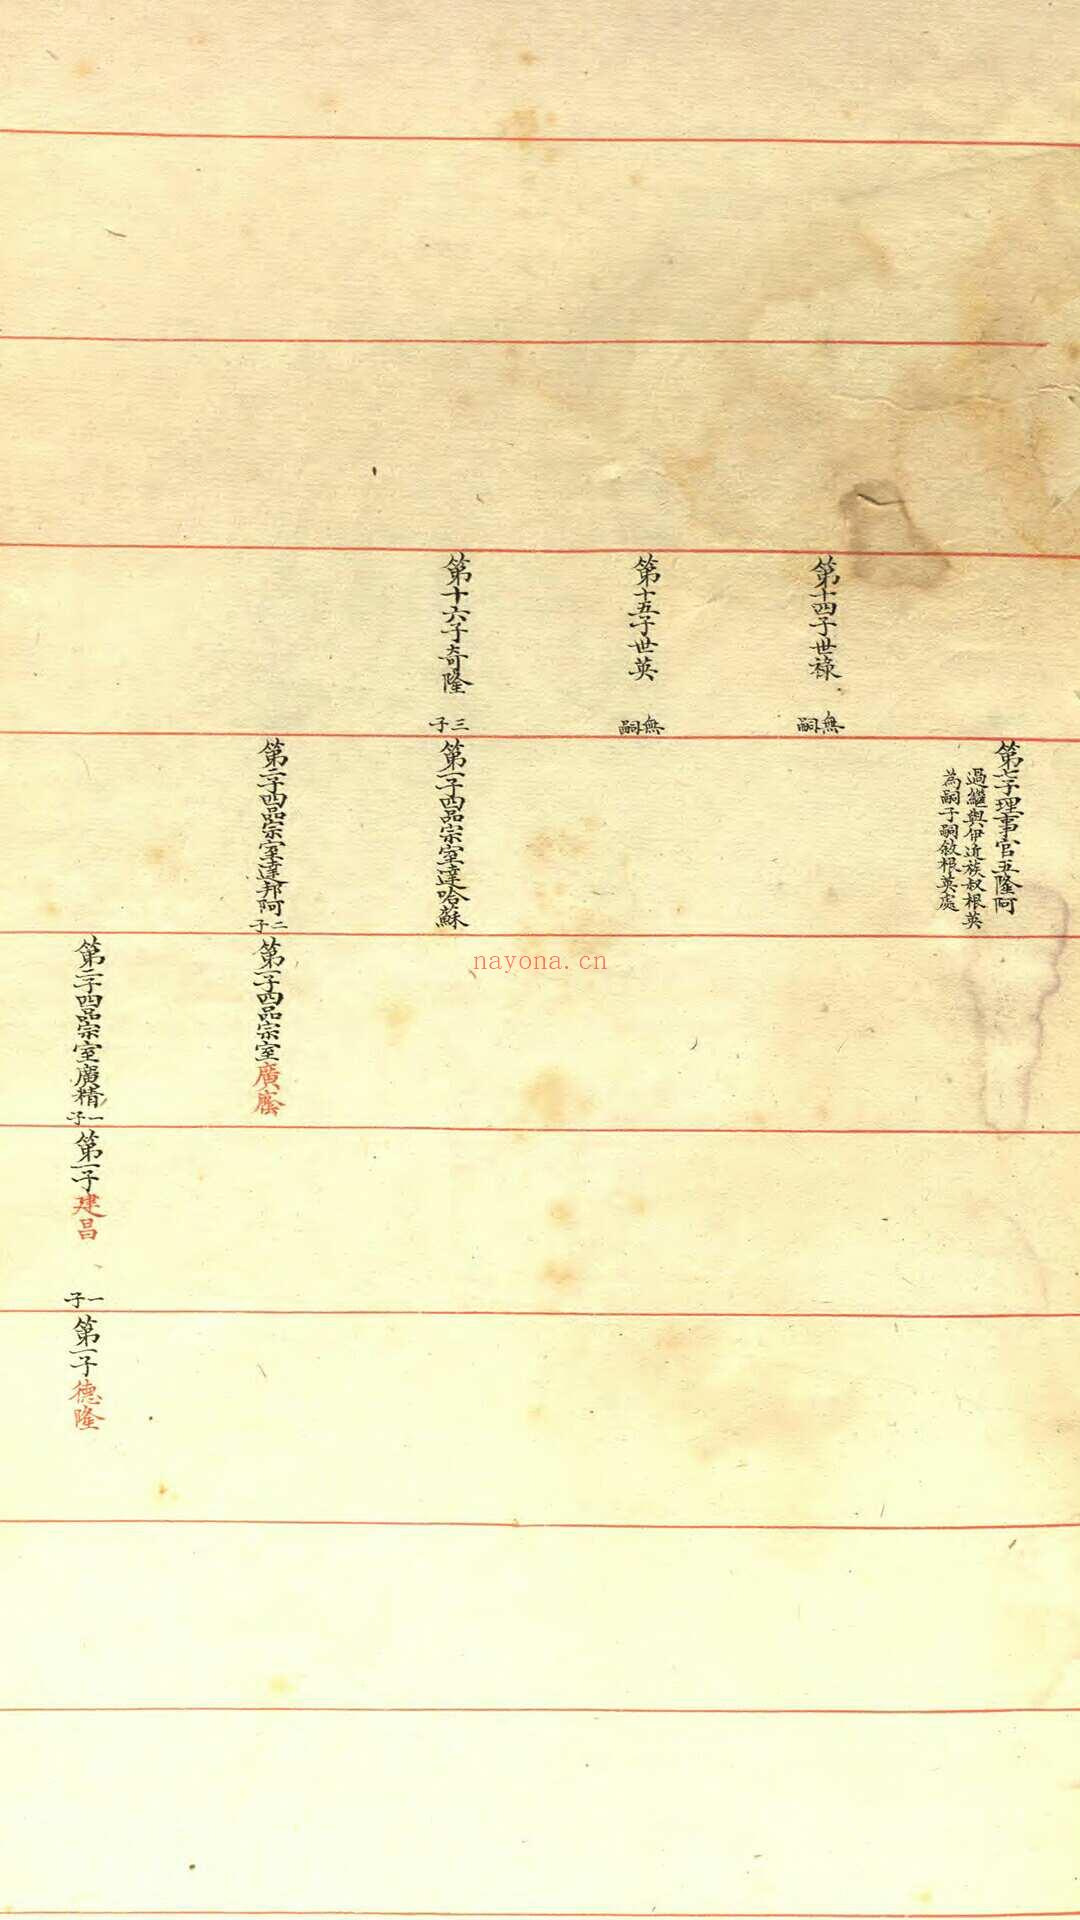 第七子理事官五隆阿
過繼與伊近族叔根英
為嗣子嗣敘根英處
第十四子世祿
無嗣
第十五子世英
無嗣
第十六子奇隆
三子
第一子四品宗室達哈蘇
第二子四品宗室達邦阿
二子
第一子四品宗室廣
第二子四品宗室廣精
一子
第一子建昌
一子
第一子德隆
nayona.cn